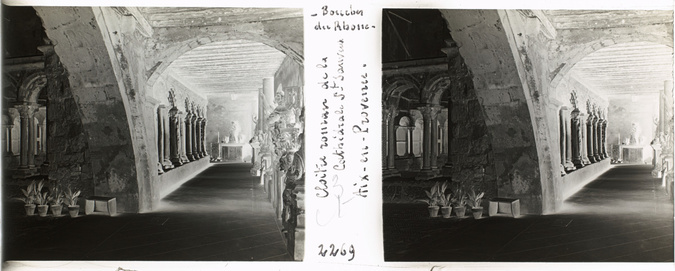 - Bouches
du Rhône -
Cloître roman de la
Cathédrale St Sauveur
Aix-en-Provence.
2269